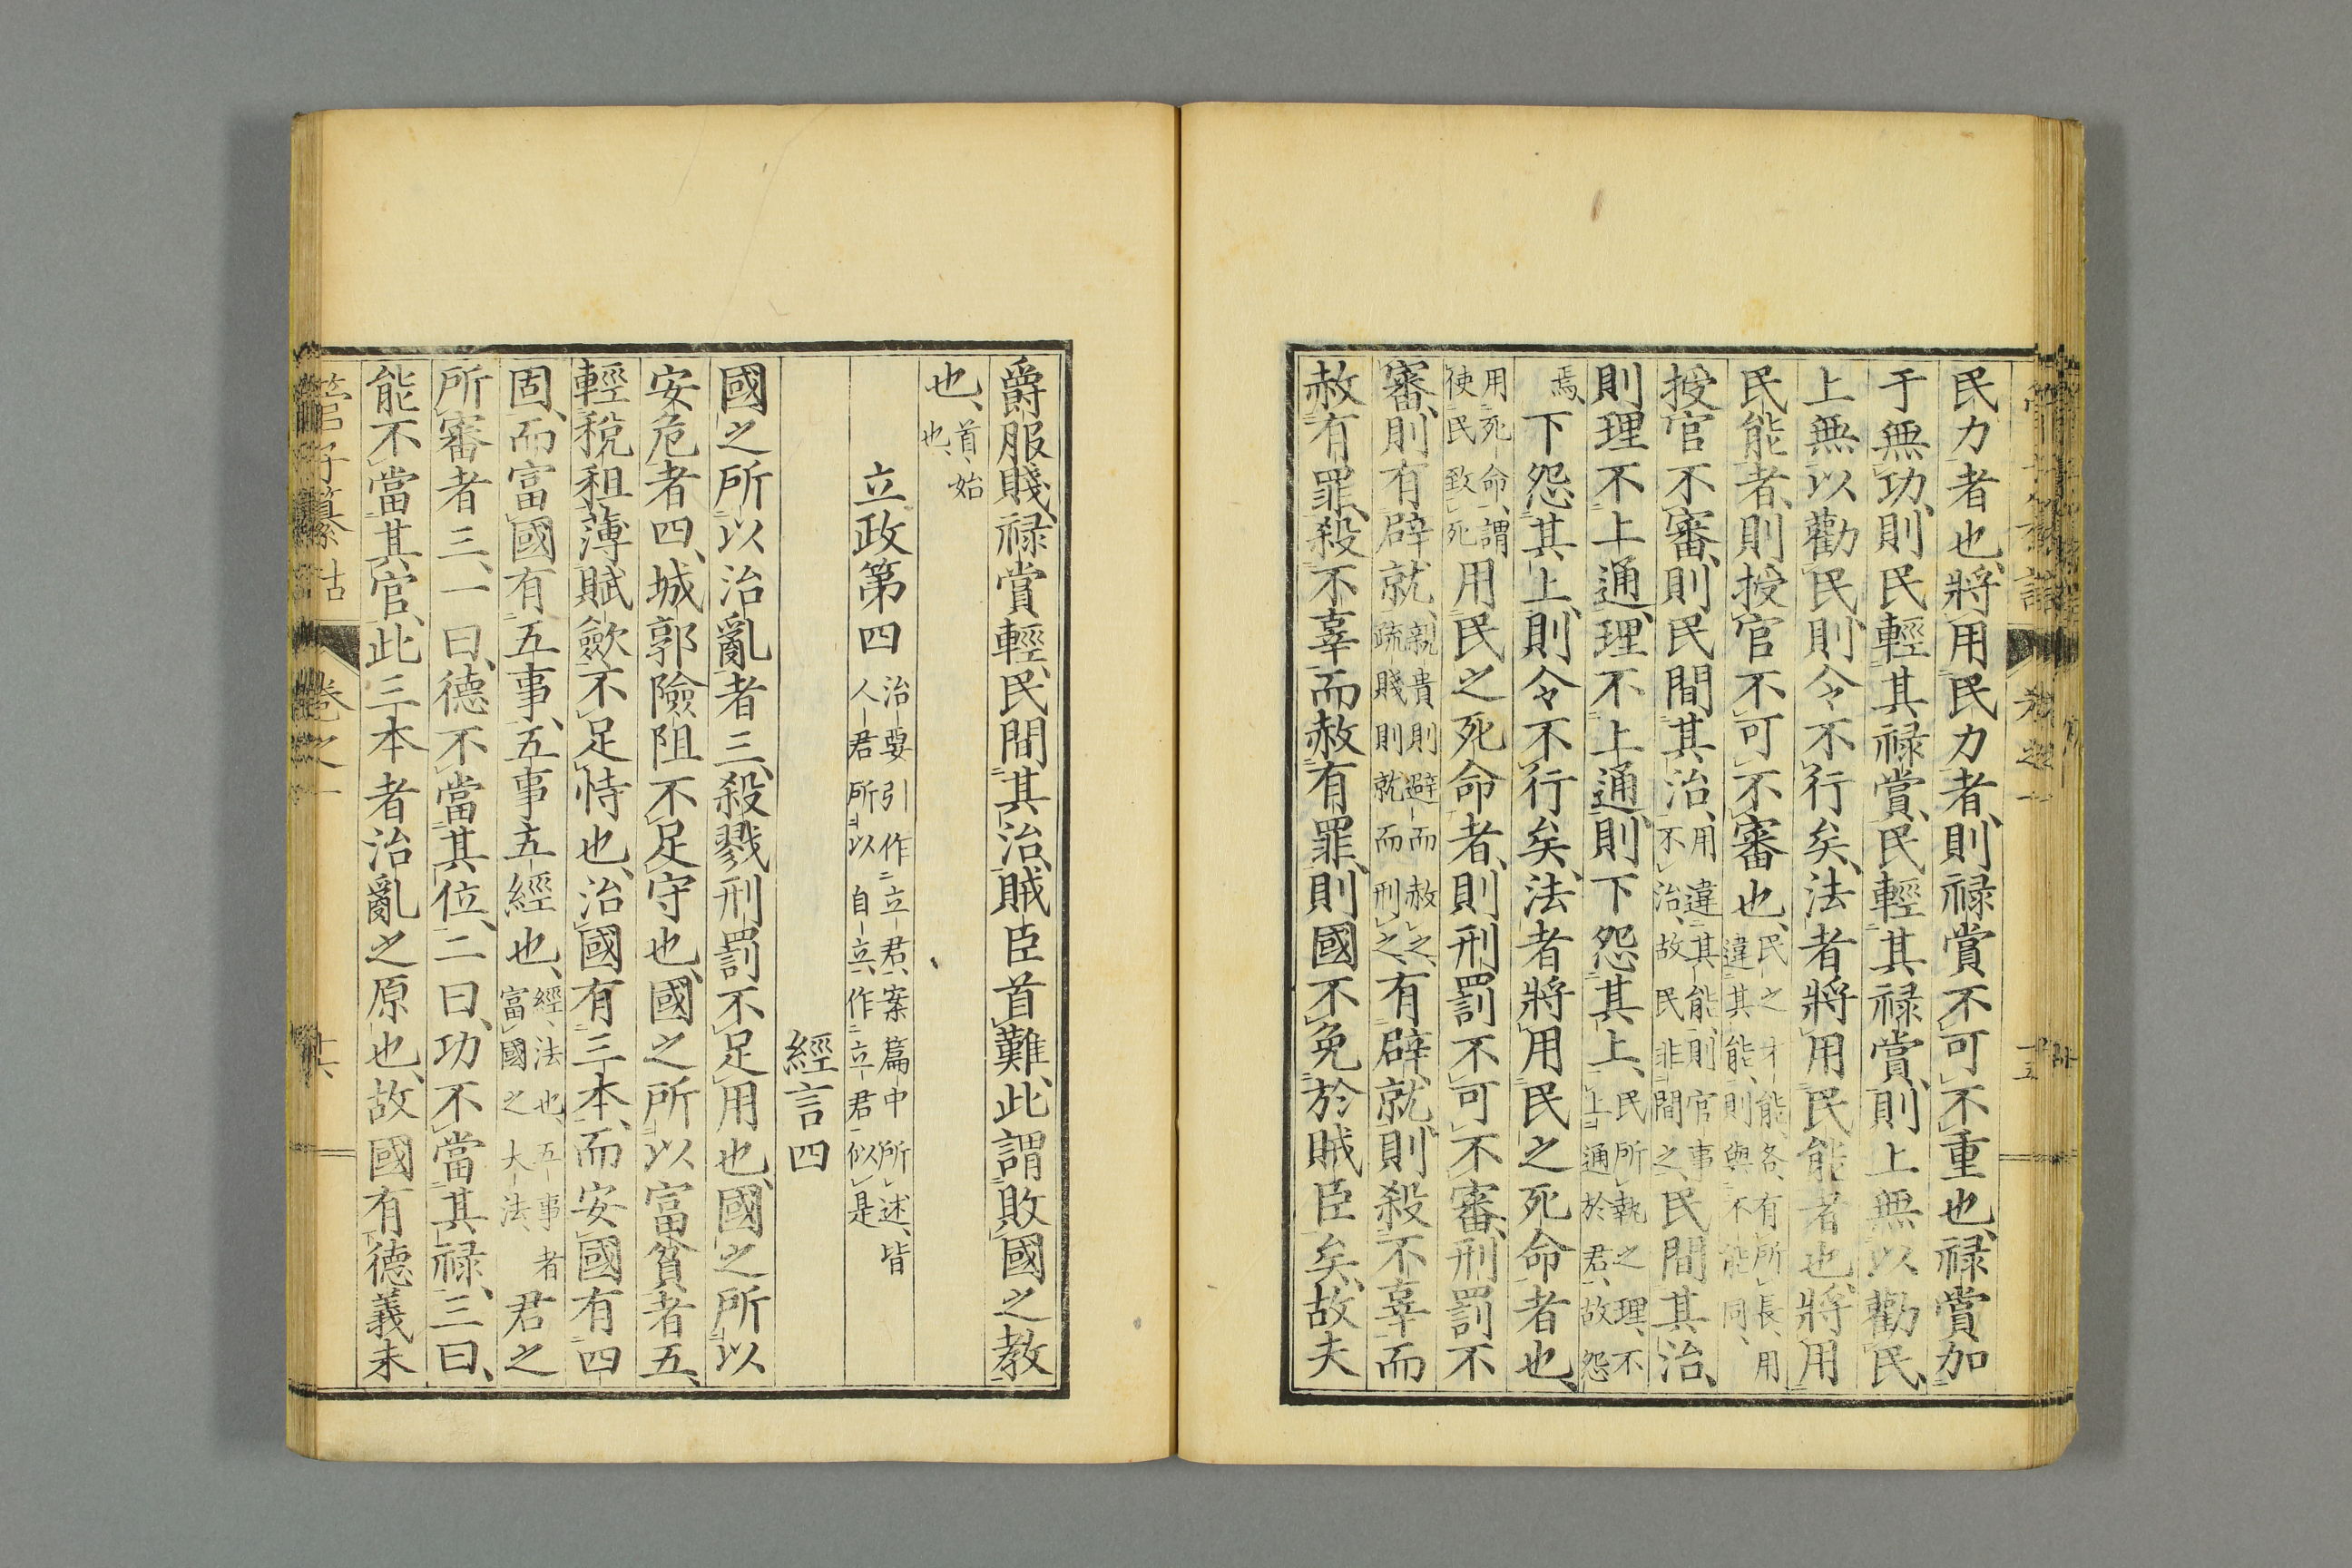 民力者也、將用民力者、則祿賞不可不重也、祿賞加
于無功、則民輕其祿賞、民輕其祿賞、則上無以勸民、
上無以勸民、則令不行矣、法者將用民能者也、將用
民能者、則授官不可不審也、民之才能、各有所長、用違其能、則與不能同、
授官不審、則民間其治、用違其能則官事不治、故民非間之、民間其治、
則理不上通、理不上通、則下怨其上、民所執之理、不上通於君、故怨
焉、下怨其上、則令不行矣、法者將用民之死命者也、
用死命、謂使民致死用民之死命者、則刑罰不可不審、刑罰不
審、則有辟就、親貴則避而赦之、疏賤則就而刑之、有辟就、則殺不辜而
赦有罪、殺不辜而赦有罪、則國不免於賊臣矣、故夫
爵服賤、祿賞輕、民間其治、賊臣首難、此謂敗國之教
也、首、始也、
立政第四 治要引作立君、案篇中所述、皆人君所以自立、作立君似是
經言四
國之所以治亂者三、殺戮刑罰不足用也、國之所以
安危者四、城郭險阻不足守也、國之所以富貧者五、
輕稅租薄賦歛不足恃也、治國有三本、而安國有四
固、而富國有五事、五事五經也、經、法也、五事者富國之大法、君之
所審者三、一曰、德不當其位、二曰、功不當其祿、三曰、
能不當其官、此三本者治亂之原也、故國有德義未
管子纂詁 卷之一 十六